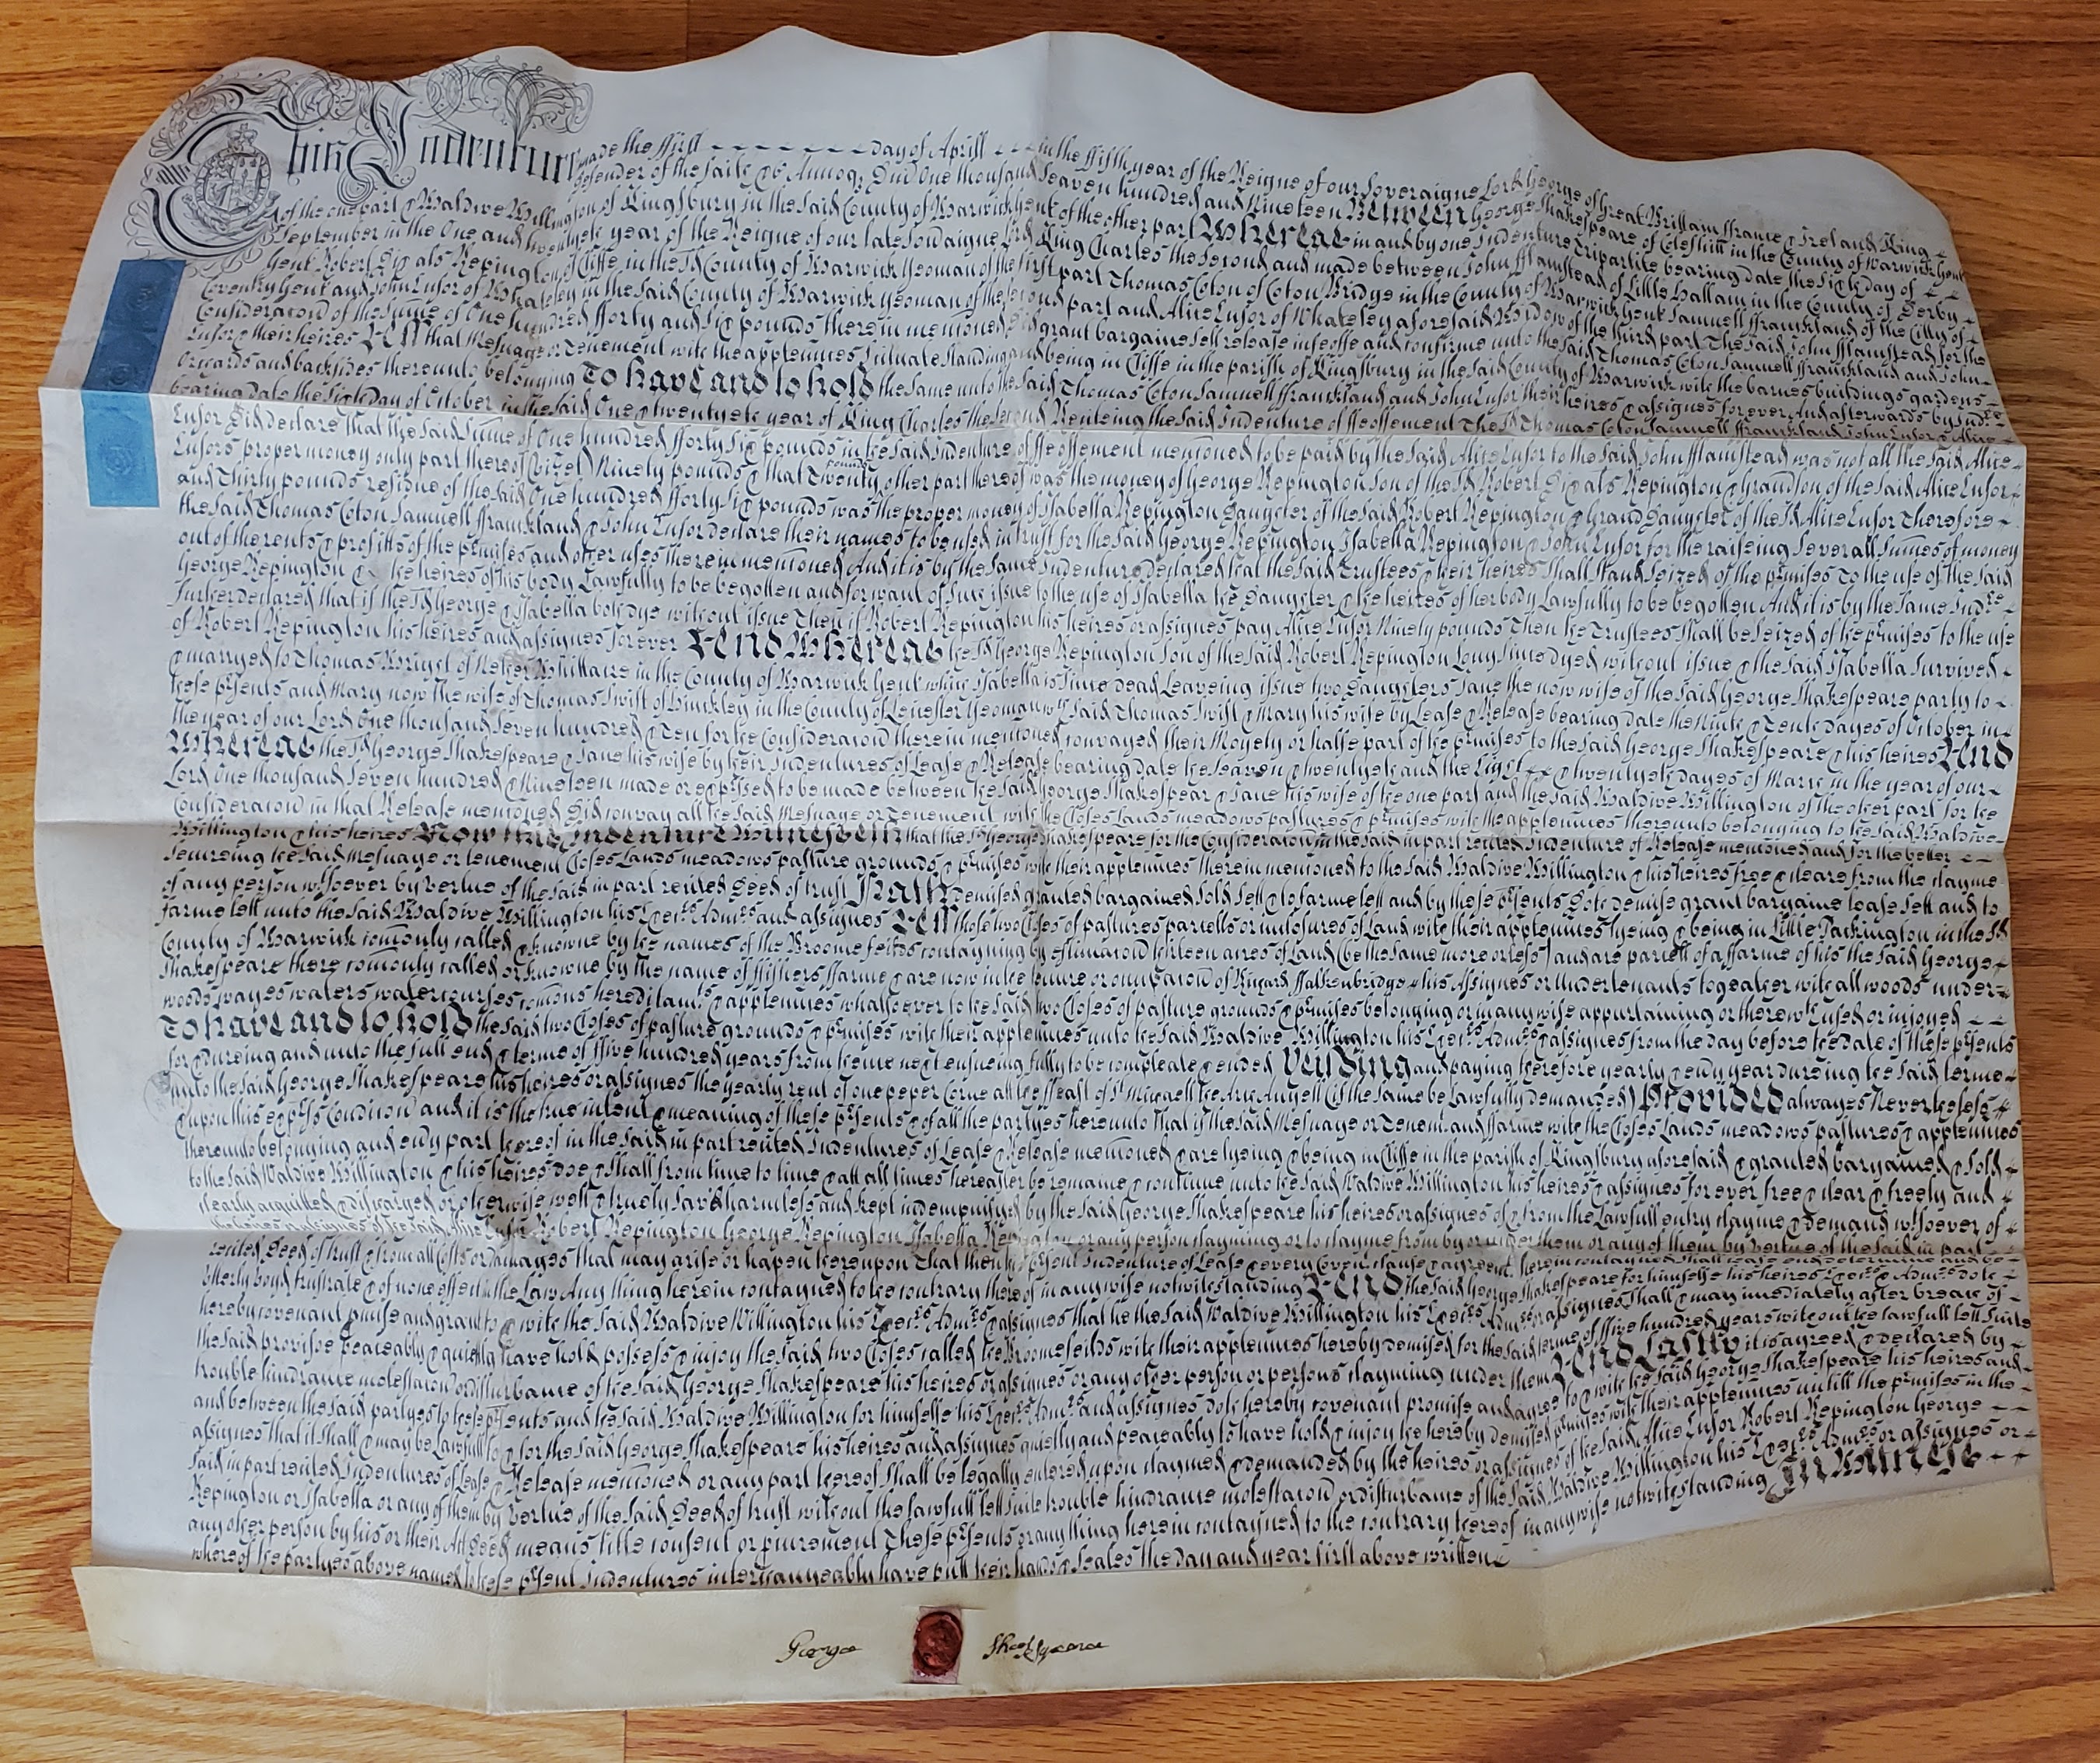 This Indenture made the ffirst day of Aprill in the ffifth year of the Reigne of our Soveraigne Lord George of Great Brittain ffrance & Ireland King
Defender of the faith &c Annoq; Dni One thousand seaven hundred and Nineteen Between George Shakespeare of Coleshill in the County of Warwick Gent
of the one part & Waldive Willington of Kingsbury in the said County of Warwick Gent of the other part Whereas in and by one Indenture Tripartite bearing date the Sixth day of
September in the One and twentyeth year of the Reigne of our late Sovaigne Lord King Charles the Second and made between John fflamstead of Little Hallam in the County of Derby
Gent Robert Dix als Repington of Cliffe in the sd County of Warwick Yeoman of the first part Thomas Coton of Coton Bridge in the County of Warwick Gent Samuell ffrankland of the Citty of
Coventry Gent and John Lusor of Whateley in the said County of Warwick Yeoman of the second part and Alice Lusor of Whateley aforesaid Widow of the third part The said John fflamstead for the
Consideracon of the Summe of One hundred fforty and Six pounds therein mencioned Did grant bargaine sell release infeoffe and confirme unto the said Thomas Coton Samuell ffrankland and John
Lusor & their heires All that Messuage or Tenement with the appteñces Scituate standing and being in Cliffe in the parish of Kingsbury in the said County of Warwick with the barnes buildings gardens
Orchards and backsides thereunto belonging To have and to hold the same unto the said Thomas Coton Samuell ffrankland and John Lusor their heires & assignes for ever And afterwards by Indre
bearing date the Sixth Day of October in the said One & twentyeth year of King Charles the Second Reciteing the said Indenture of ffeoffement The sd Thomas Coton Samuell ffrankland John Lusor & Alice
Lusor Did declare that the said Summe of One hundred fforty Six pounds in the said Indenture of ffeoffement mencioned to be paid by the said Alice Lusor to the said John fflamstead was not all the said Alice
Lusors proper money only part thereof (vizt) Ninety pounds & that Twenty pounds other part thereof was the money of George Repington Son of the sd Robert Dix als Repington & Grandson of the said Alice Lusor
and Thirty pounds residue of the said One hundred fforty Six pounds was the proper money of Isabella Repington Daughter of the said Robert Repington & Grand Daughter of the sd Alice Lusor Therefore
the said Thomas Coton Samuell ffrankland & John Lusor declare their names to be used in trust for the said George Repington Isabella Repington & John Lusor for the raiseing severall summes of money
out of the rents & profitts of the pmises and other uses therein mencioned And it is by the same Indenture declared that the said Trustees & their heires shall stand seized of the pmises To the use of the said
George Repington & the heires of his body Lawfully to be begotten and for want of such issue to the use of Isabella the Daughter & the heires of her body Lawfully to be begotten And it is by the same Indre
further declared that if the sd George & Isabella both dye without issue Then if Robert Repington his heires or assignes pay Alice Lusor Ninety pounds Then the Trustees shall be seized of the pmises to the use
of Robert Repington his heires and assignes for ever And Whereas the sd George Repington Son of the said Robert Repington Long since dyed without issue & the said Isabella survived
& marryed to Thomas Wright of Nether Whittaire in the County of Warwick Gent which Isabella is since dead Leaveing issue two Daughters Jane the now wife of the said George Shakespeare party to
these psents and Mary now the wife of Thomas Swift of Hinckley in the County of Leicester Yeoman wch said Thomas Swift & Mary his wife by Lease & Release bearing date the Ninth & Tenth dayes of October in
the year of our Lord One thousand seven hundred & Ten for the Consideracon therein mencioned conveyed their Moyety or halfe part of the pmises to the said George Shakespeare & his heires And
Whereas the sd George Shakespeare & Jane his wife by their Indentures of Lease & Release bearing date the seaven & twentyeth and the Eight & twentyeth dayes of March in the year of our
Lord One thousand seven hundred & Nineteen made or expressed to be made between the said George Shakespear & Jane his wife of the one part and the said Waldive Willington of the other part for the
Consideracon in that Release mencioned Did convay all the said Messuage or Tenement with the Closes Lands meadows pastures & pmises with the appteñces thereunto belonging to the said Waldive
Willington & his heires Now this Indenture Witnesseth that the sd George Shakespeare for the Consideracon in the said in part recited Indenture of Release mencioned and for the better
secureing the said Messuage or tenement Closes Lands meadows pasture grounds & pmises with their appteñces therein mencioned to the said Waldive Willington & his heires free & cleare from the clayme
of any person whsoever by vertue of the said in part recited Deed of trust Hath demised granted bargained sold sett & to farme lett and by these psents Doth demise grant bargaine lease sett and to
farme lett unto the said Waldive Willington his Exers Admrs and assignes All those two Closes of pastures parcells or inclosures of Land with their appteñces lyeing & being in Little Packington in the sd
County of Warwick comonly called & knowne by the names of the Broome feilds contayning by estimacon thirteen acres of Land (be the same more or less) and are parcell of a ffarme of his the said George
Shakespeare there comonly called or knowne by the name of ffishers ffarme & are now in the tenure or occupacon of Richard ffalkenbridge & his Assignes or Undertenants togeather with all woods under
woods wayes waters watercourses comons hereditamts & appteñces whatsoever to the said two Closes of pasture grounds & pmises belonging or in any wise appurtaining or therewth used or injoyed
To have and to hold the said two Closes of pasture grounds & pmises with their appteñces unto the said Waldive Willington his Exers Admrs & assignes from the day before the date of these psents
for & dureing and unto the full end & terme of ffive hundred years from thence next ensueing fully to be compleate & ended Yeilding and paying therefore yearly & evry year dureing the said terme
unto the said George Shakespeare his heires or assignes the yearly rent of one peper Corne att the ffeast of St Michaell the Arch Angell (if the same be Lawfully demanded) Provided alwayes Neverthelesse
& upon this express Condicon and it is the true intent & meaning of these psents & of all the partyes hereunto that if the said Messuage or Tenemt and ffarme with the Closes Lands meadows pastures & appteñces
thereunto belonging and evry part thereof in the said in part recited Indentures of Lease & Release mencioned & are lyeing & being in Cliffe in the parish of Kingsbury aforesaid & granted bargained & sold
to the said Waldive Willington & his heires doe & shall from time to time & att all times hereafter be remaine & continue unto the said Waldive Willington his heires & assignes for ever free & clear & freely and
clearly acquitted & discharged or otherwise well & truely saved harmless and kept indempnifyed by the said George Shakespeare his heires or assignes of & from the Lawfull entry clayme & demand whsoever of
the heires or assignes of the said Alice Lusor Robert Repington George Repington Isabella Repington or any person clayming or to clayme from by or under them or any of them by vertue of the said in part
recited Deed of trust & from all Costs or damages that may arise or hapen thereupon That then this psent Indenture of Lease & every Covent clause & agreemt herein contayned shall cease and determine and be
utterly voyd frustrate & of none effect in the Law Any thing herein contayned to the contrary thereof in any wise notwithstanding And the said George Shakespeare for himselfe his heires Exers & Admrs doth
hereby covenant pmise and grant to & with the said Waldive Willington his Exers Admrs & assignes that he the said Waldive Willington his Exers Admrs or assignes shall & may imediately after breach of
the said provisoe peaceably & quietly have hold possess & injoy the said two Closes called the Broomefeilds with their appteñces hereby demised for the said terme of ffive hundred years without the lawfull lett suite
trouble hindrance molestacon or disturbance of the said George Shakespeare his heires or assignes or any other person or persons clayming under them And Lastly it is agreed & declared by
and between the said partyes to these psents and the said Waldive Willington for himselfe his Exers Admrs and assignes doth hereby covenant promise and agree to & with the said George Shakespeare his heires and
assignes that it shall & may be Lawfull to & for the said George Shakespeare his heires and assignes quietly and peaceably to have hold & injoy the hereby demised pmises with their appteñces untill the pmises in the
said in part recited Indentures of Lease & Release mencioned or any part thereof shall be legally entered upon claymed & demanded by the heires or assignes of the said Alice Lusor Robert Repington George
Repington or Isabella or any of them by vertue of the said Deed of trust without the lawfull lett suite trouble hindrance molestacon or disturbance of the said Waldive Willington his Exers Admrs or assignes or
any other person by his or their Act Deed means title consent or pcurement These psents or any thing herein contayned to the contrary thereof in any wise notwithstanding In Witness
whereof the partyes above named to these psent Indentures interchangeably have putt their hands & seales the day and year first above written
George Shakespeare